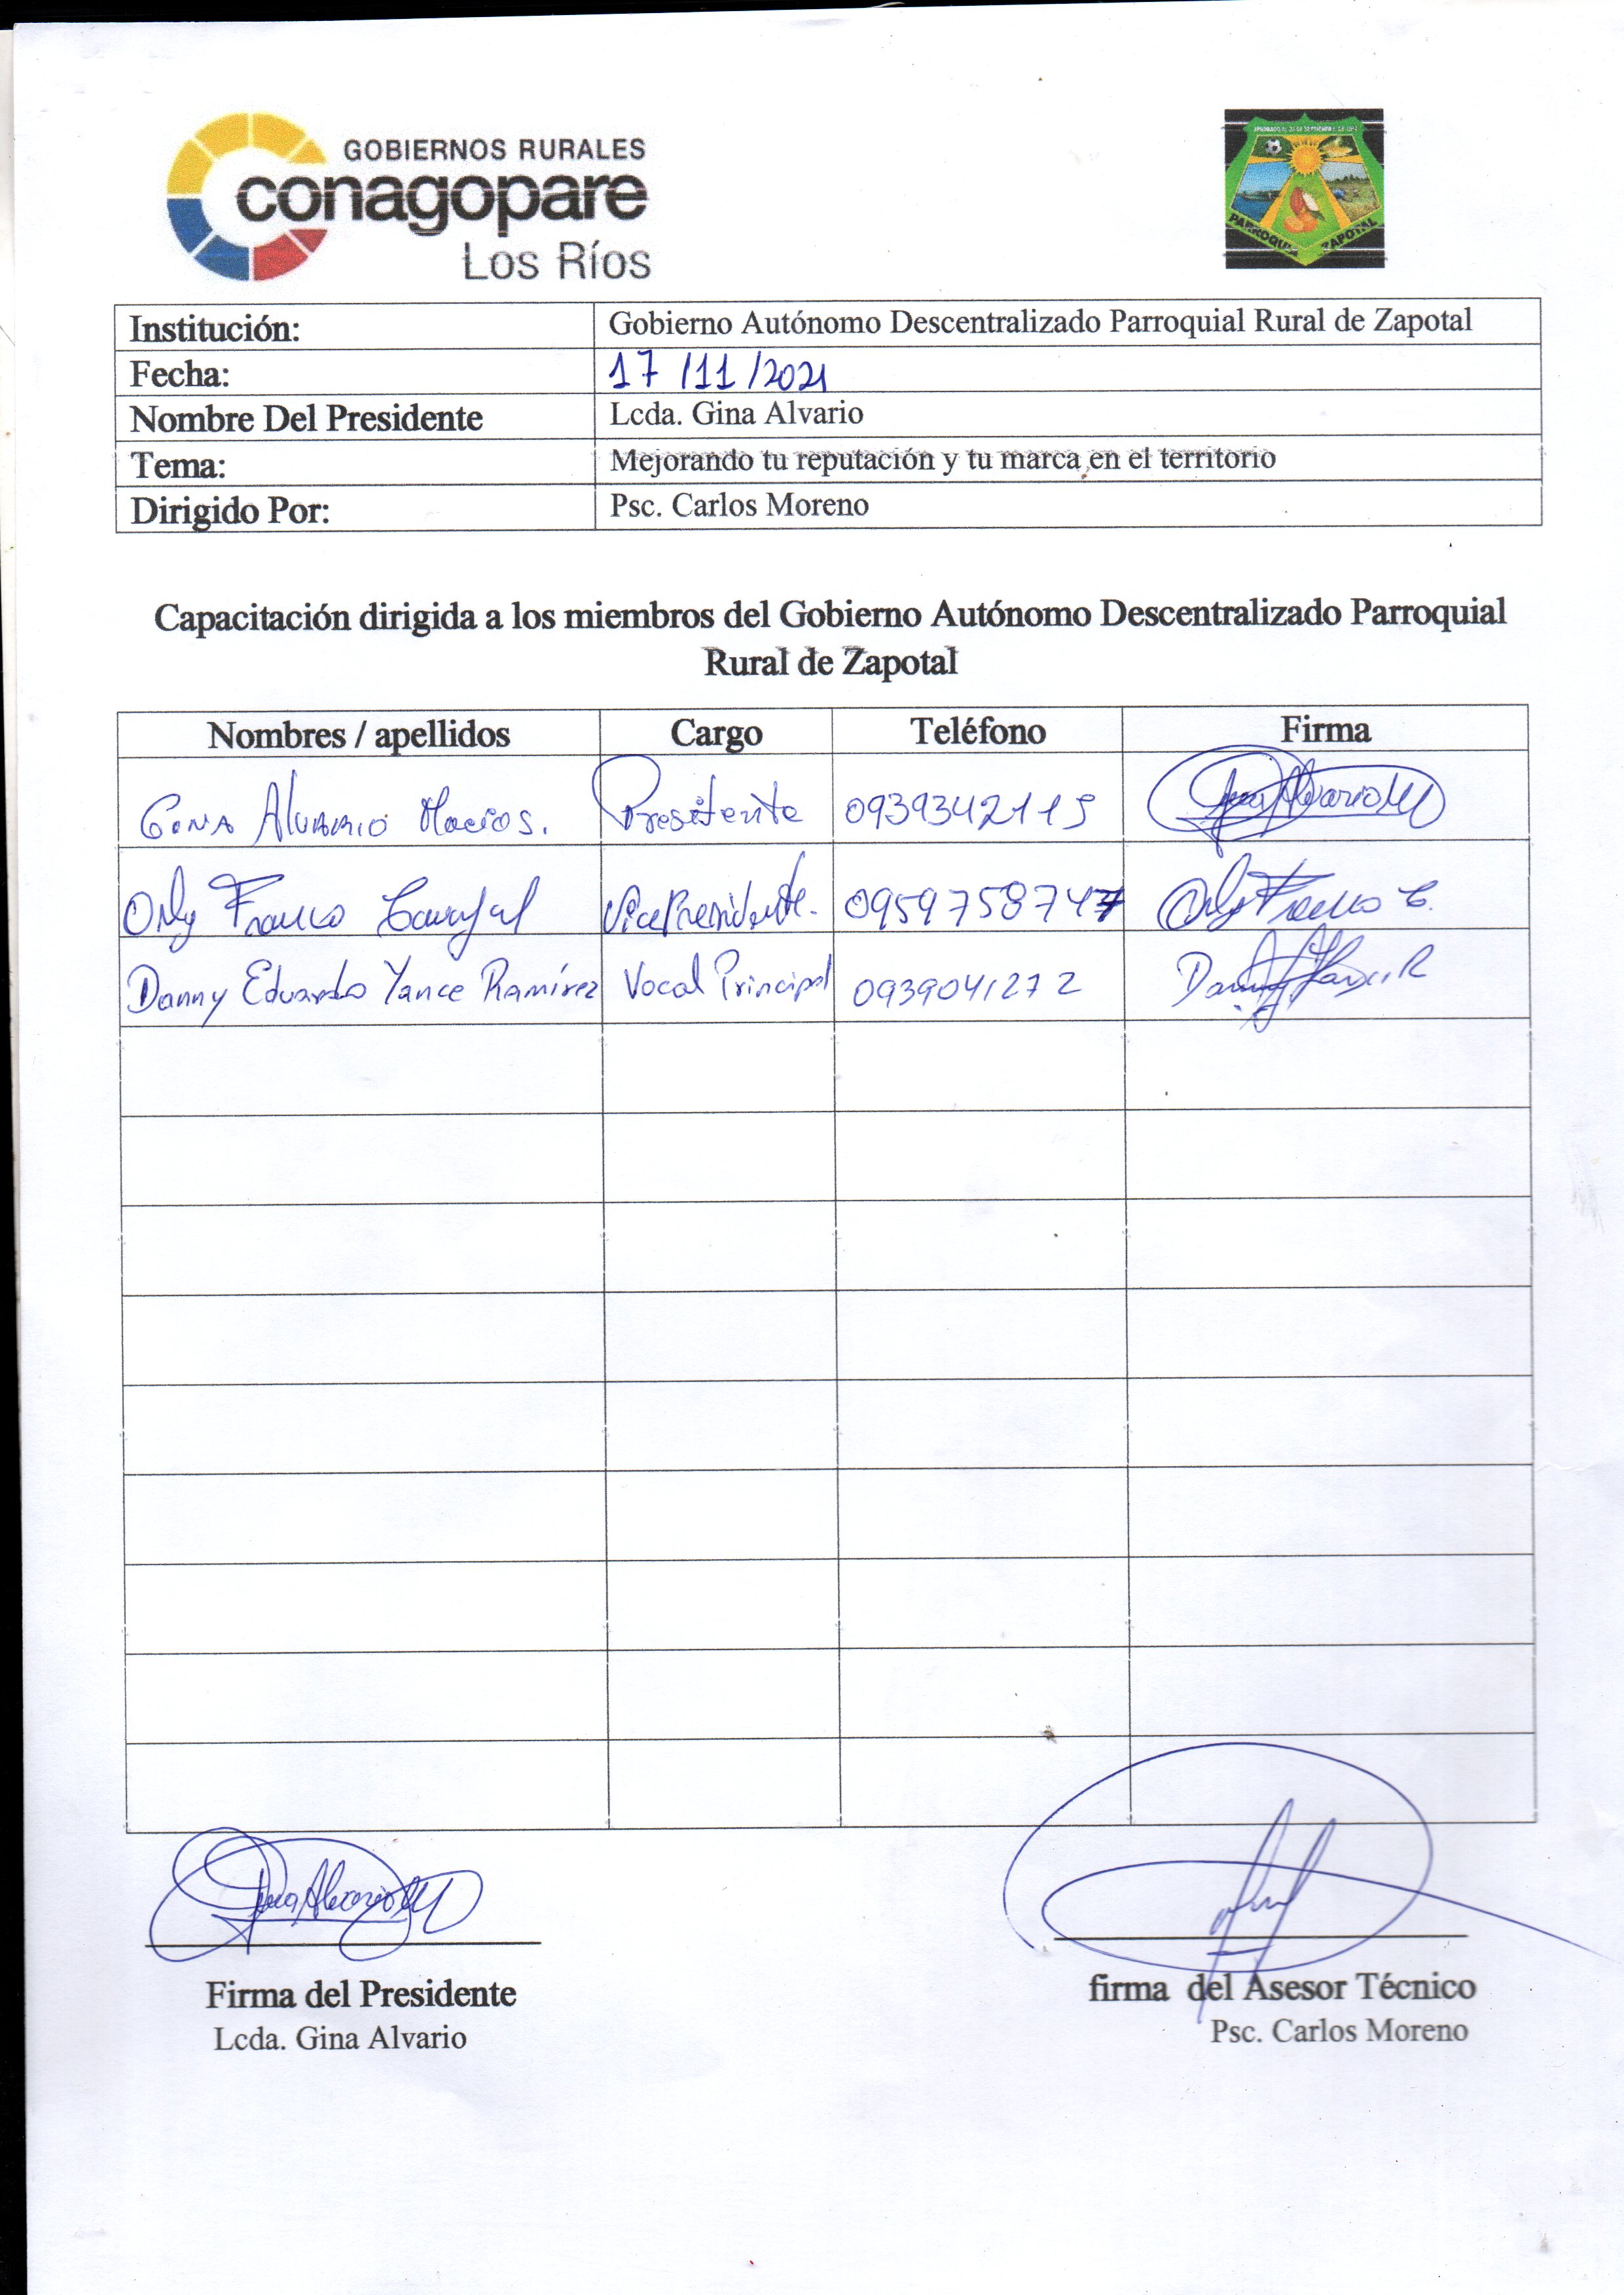 GOBIERNOS RURALES
conagopare
Los Ríos
PARROQUIA ZAPOTAL
Institución: Gobierno Autónomo Descentralizado Parroquial Rural de Zapotal
Fecha: 17/11/2021
Nombre Del Presidente Lcda. Gina Alvario
Tema: Mejorando tu reputación y tu marca en el territorio
Dirigido Por: Psc. Carlos Moreno
Capacitación dirigida a los miembros del Gobierno Autónomo Descentralizado Parroquial
Rural de Zapotal
Nombres / apellidos Cargo Teléfono Firma
Gina Alvario Macios. Presidente 0939342115 Gina Alvario M
Orly Franco Carvajal Vicepresidente. 0959758747 Orly Franco C.
Danny Eduardo Yance Ramírez Vocal Principal 0939041272 Danny Yance R
Gina Alvario M
Firma del Presidente firma del Asesor Técnico
Lcda. Gina Alvario Psc. Carlos Moreno